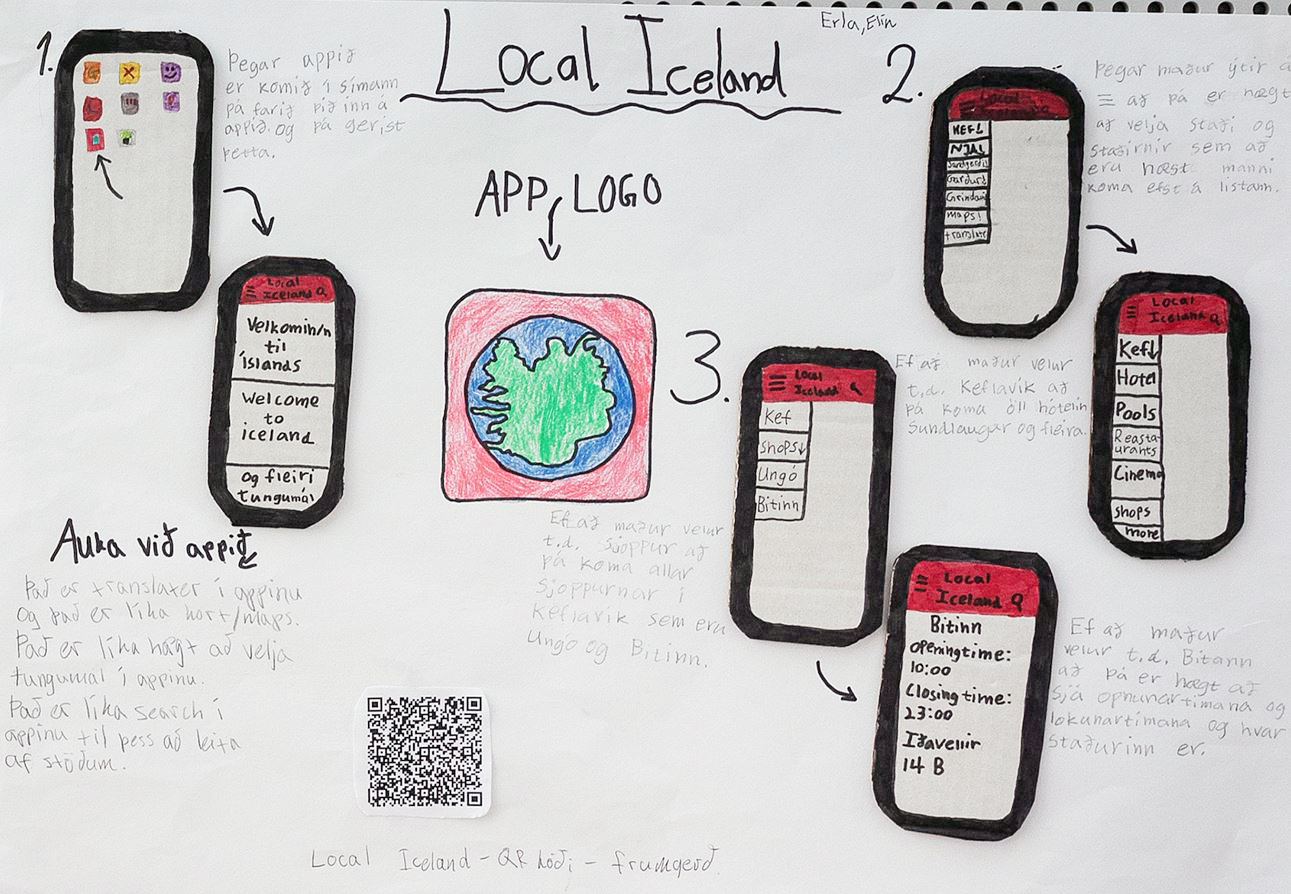 Local Iceland
Erla, Elín
1.
Þegar appið
er komið í símann
þá farið þið inn á
appið og þá gerist
þetta.
Local
Iceland
Velkomin/n
til
íslands
Welcome
to
iceland
og fleiri
tungumál
APP LOGO
2.
Þegar maður ýtir á
≡ að þá er hægt
að velja staði og
staðirnir sem að
eru næst manni
koma efst á listann.
Local
KEF↓
NJA↓
Sandgerði
Garður↓
Grindavi
maps↓
translate
Local
Iceland
Kef↓
Hotel
Pools
Reasta-
urants
Cinema
shops
more
Ef að maður velur
t.d. Keflavík að
þá koma öll hótelin
Sundlaugar og fleira.
3.
Local
Iceland
Kef
shops↓
Ungó
Bitinn
Ef að maður velur
t.d. sjoppur að
þá koma allar
sjoppurnar í
Keflavík sem eru
Ungó og Bitinn.
Local
Iceland
Bitinn
openingtime:
10:00
Closing time:
23:00
Iðavellir
14 B
Ef að maður
velur t.d. Bitann
að þá er hægt að
sjá opnunartímana og
lokunartímana og hvar
staðurinn er.
Auka við appið
Það er translater í appinu
og það er líka kort/maps.
Það er líka hægt að velja
tungumál í appinu.
Það er líka search í
appinu til þess að leita
af stöðum.
Local Iceland - QR kóði - frumgerð.